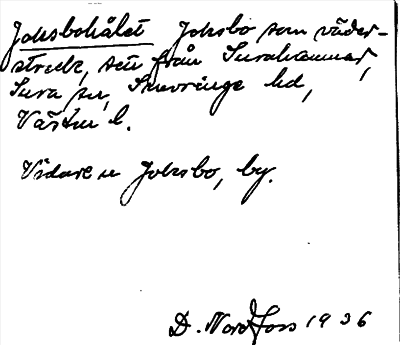 Joksbohålet Joksbo som väder-
streck, sett från Surahammar,
Sura sn, Snevringe hd,
Västm l.
Vidare u Joksbo, by.
D. Nordfors 1936